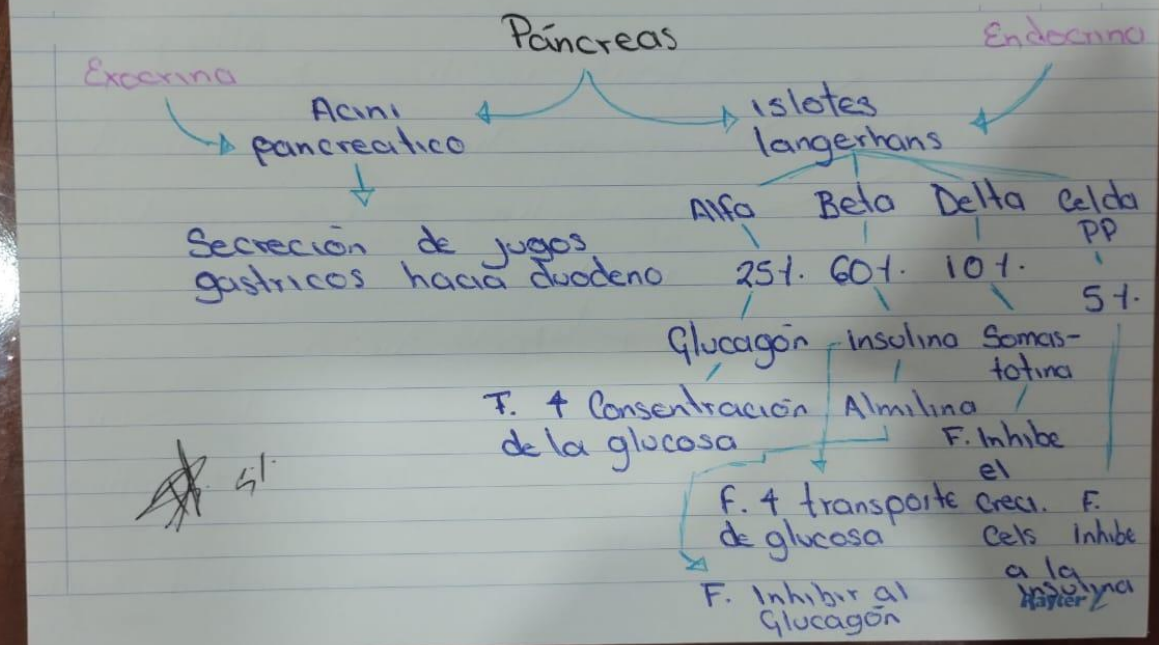 Páncreas
Exocrina
Endocrina
Acini
pancreatico
islotes
langerhans
Secreción de jugos
gastricos hacia duodeno
Alfa Beta Delta Celda
PP
25%. 60%. 10%.
5%.
Glucagón insulina Somas-
totina
F. ↑ Consentración Almilina
de la glucosa
F. Inhibe
el
creci.
Cels
F. ↑ transporte
de glucosa
F.
inhibe
a la
insulina
F. Inhibir al
Glucagón